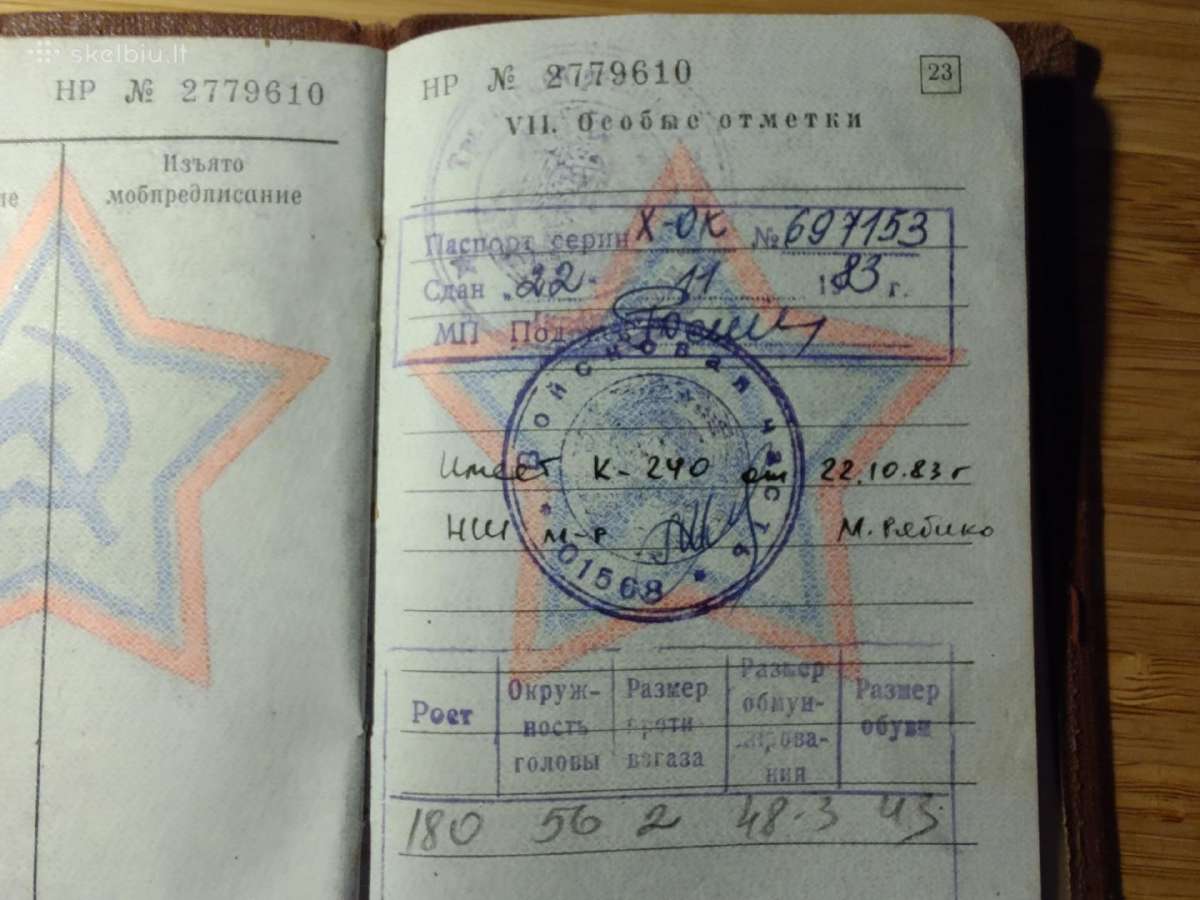 skelbiu.lt
НР № 2779610
Изъято
мобпредписание
НР № 2779610
23
VII. Особые отметки
Паспорт серии X-ОК № 697153
Сдан „22" 11 1983 г.
МП
Войсковая часть
01568
Имеет К-240 от 22.10.83 г
НШ м-р М. Рябико
Рост
Окруж-
ность
головы
Размер
проти
вогаза
Размер
обмун-
дирова-
ния
Размер
обуви
180 56 2 48-3 43